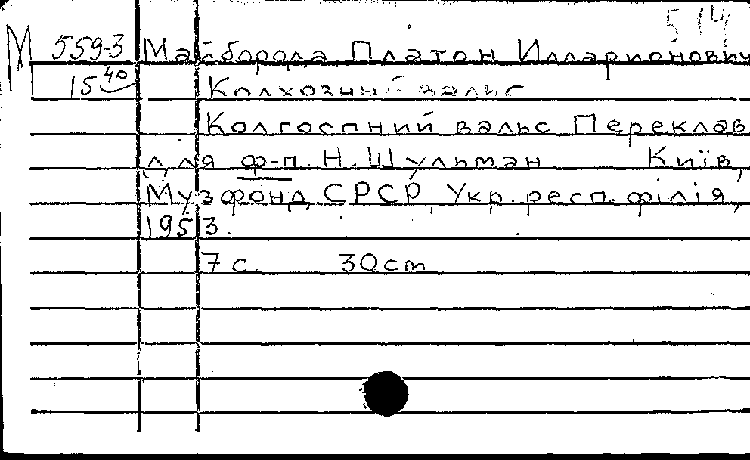 514
М 559-3 Майборода Платон Илларионович
15 40 Колхозный вальс
Колгоспний вальс Переклав
для ф-п. Н. Шульман Київ,
Музфонд СРСР, Укр. респ. філія,
1953.
7 с. 30cm